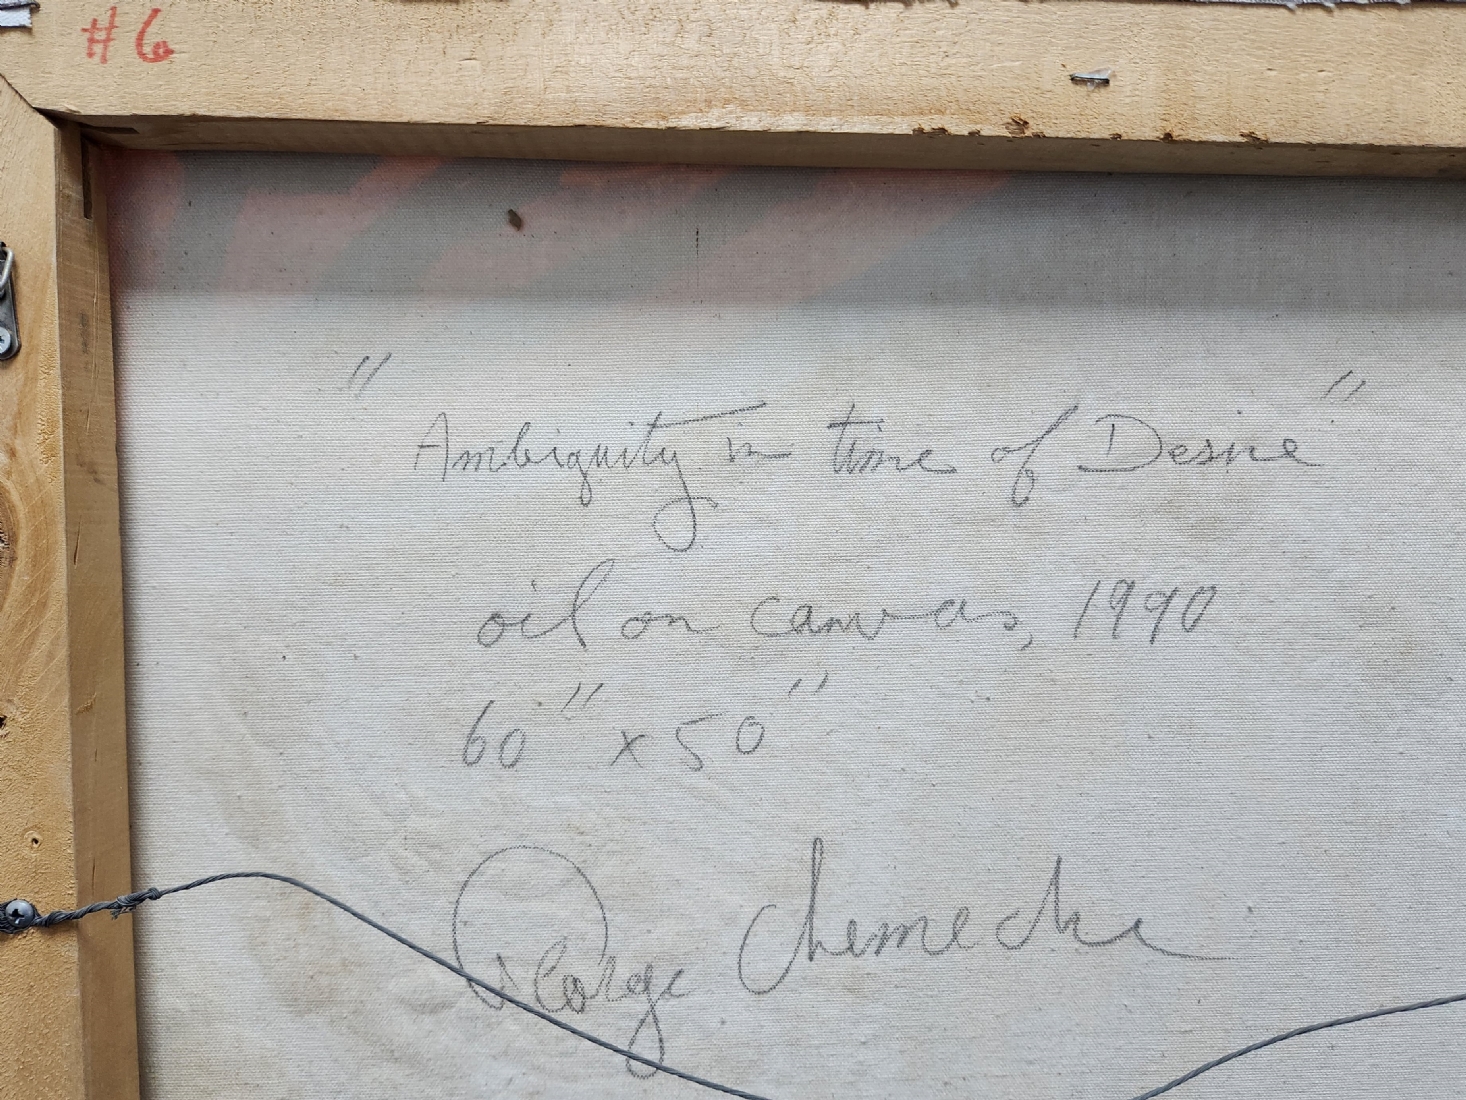 #6
"Ambiguity in time of Desire"
oil on canvas, 1990
60" x 50"
George Chemeche